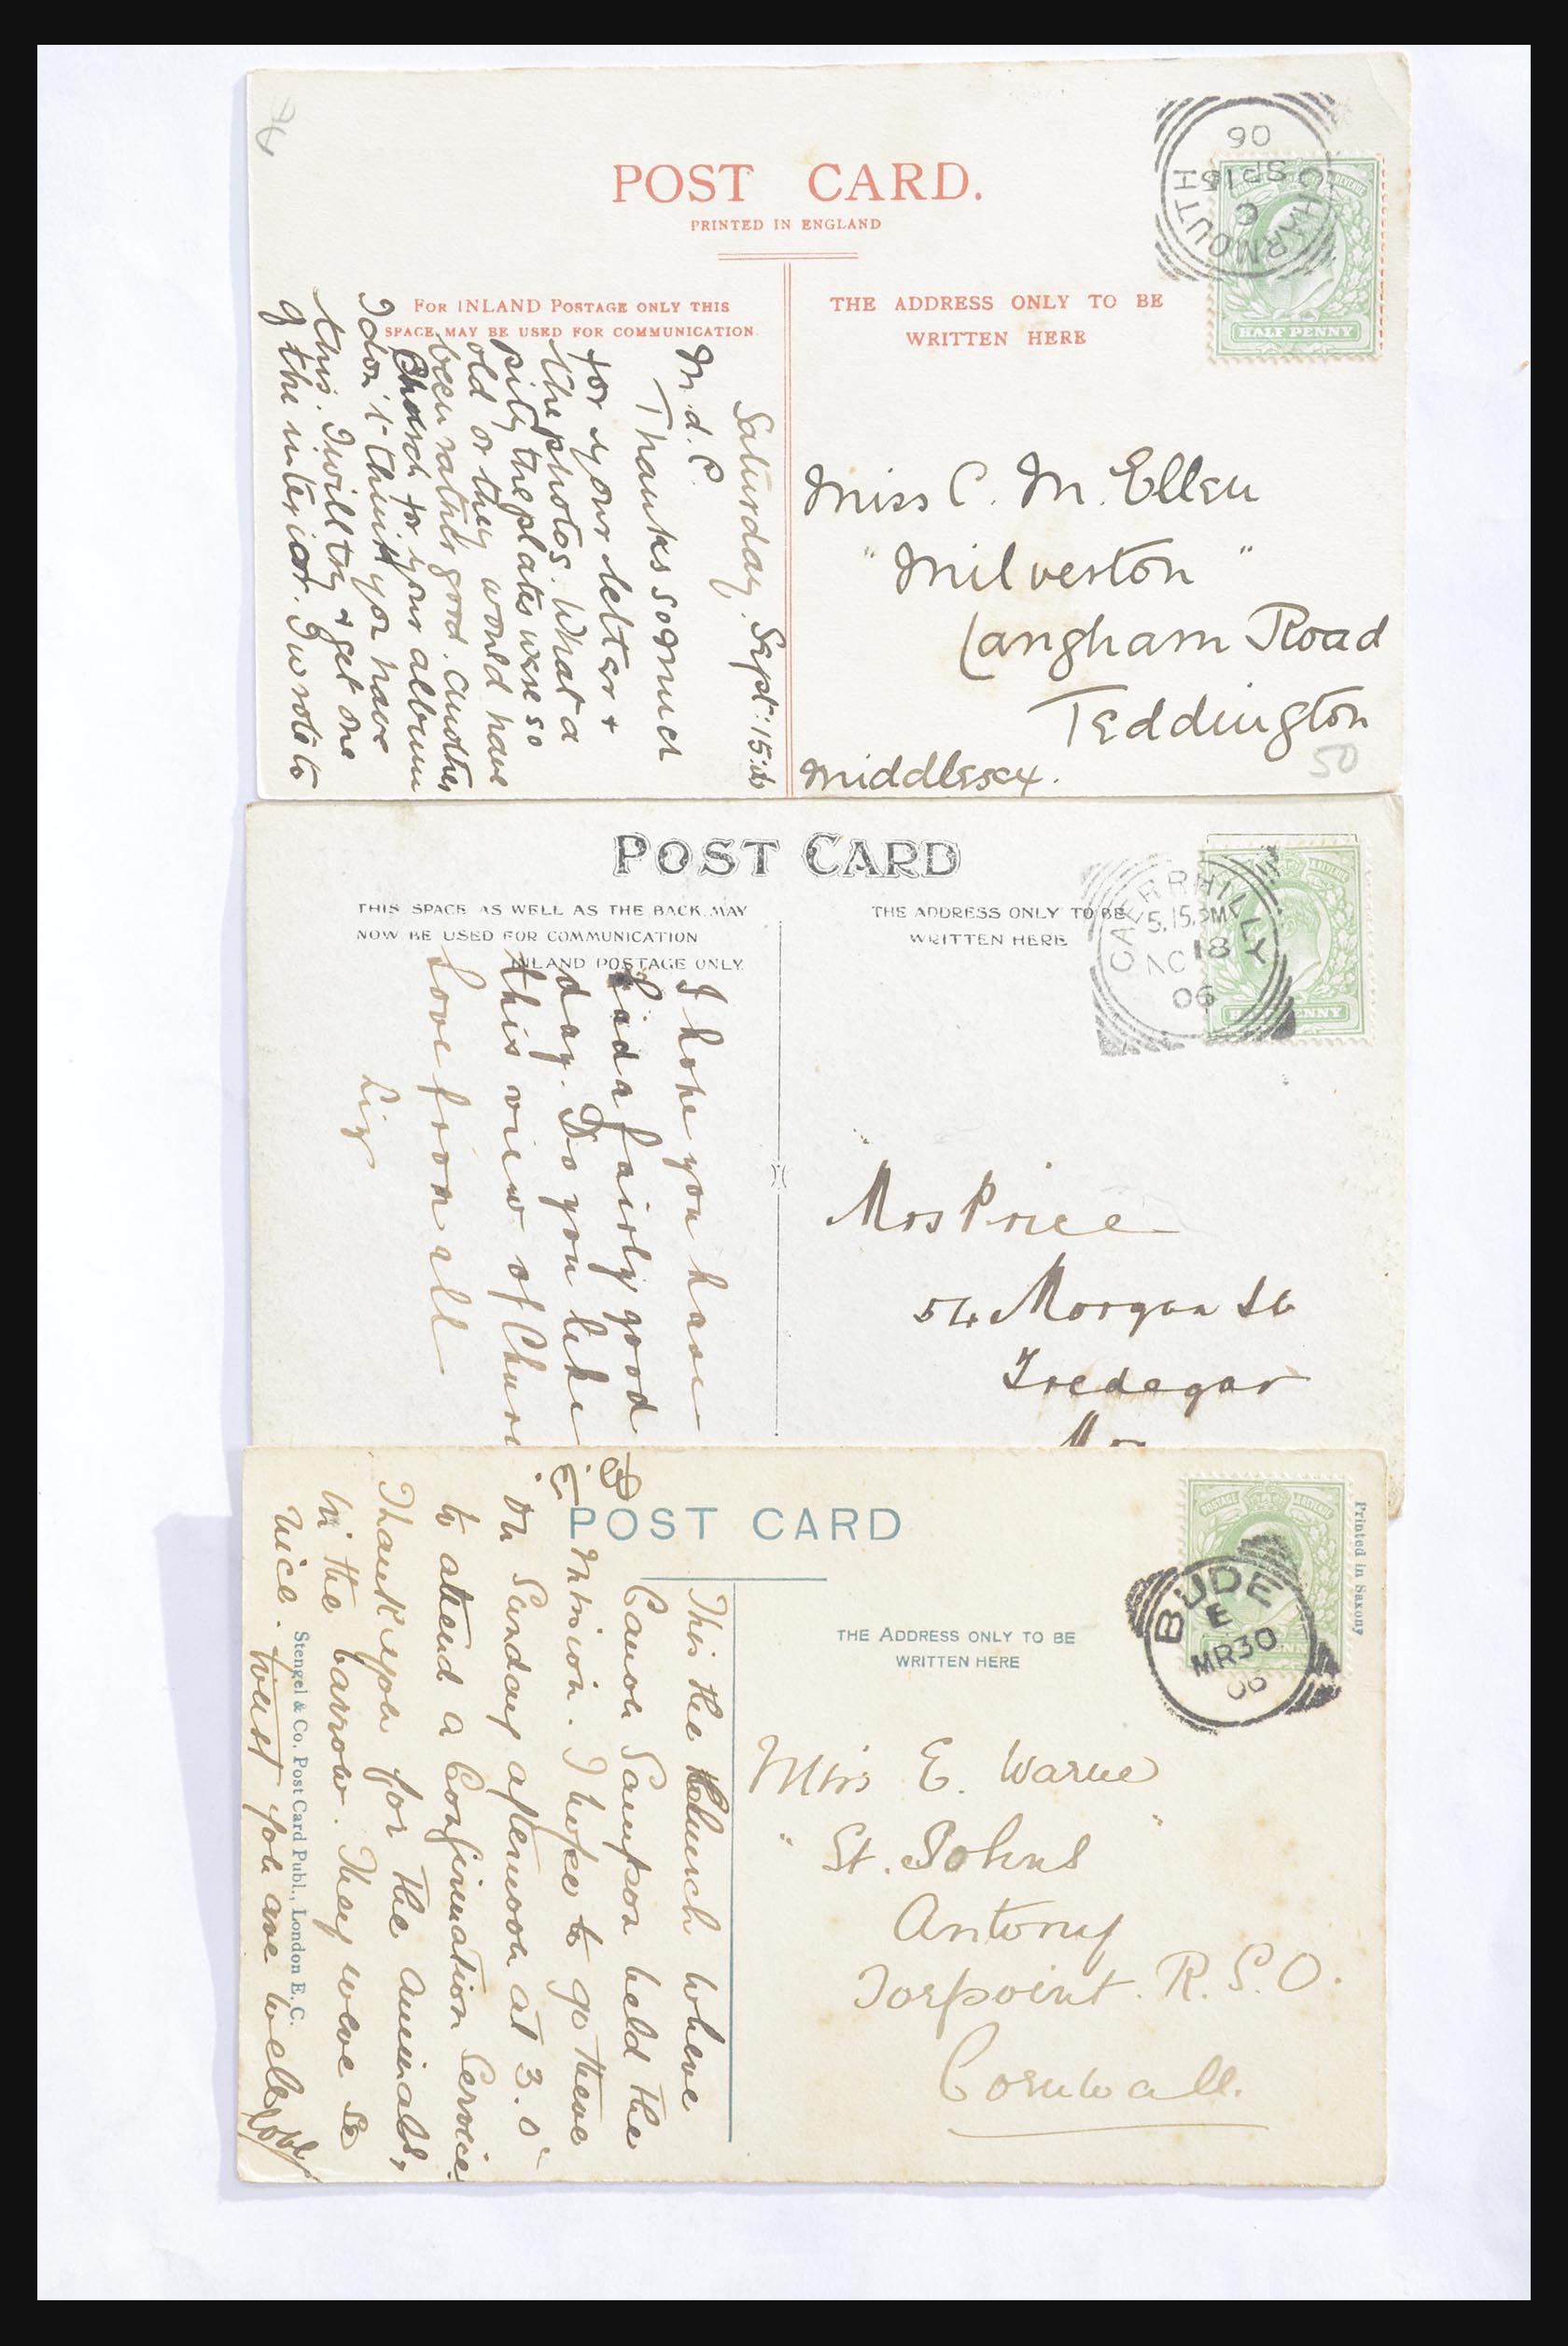 POST CARD.
PRINTED IN ENGLAND
FOR INLAND POSTAGE ONLY THIS
SPACE MAY BE USED FOR COMMUNICATION.
THE ADDRESS ONLY TO BE
WRITTEN HERE
CHARMOUTH
C
SP 15
06
HALF PENNY
Saturday. Sept: 15th
M. d. C.
Thanks so much
for your letter +
the photos. What a
pity the plates were so
old or they would have
been rather good. Another
Church for your album
I don't think you have
this. I will try & get one
of the interior. I wrote to
Miss C. M. Ellen
"Milverton"
Langham Road
Teddington
Middlesex.
50
POST CARD
THIS SPACE AS WELL AS THE BACK MAY
NOW BE USED FOR COMMUNICATION
INLAND POSTAGE ONLY.
THE ADDRESS ONLY TO BE
WRITTEN HERE
CAERPHILLY
5.15 PM
NO 18
06
I hope you have
had a fairly good
day. Do you like
this view of
Love from all
Liz
Mrs Price
54 Morgan St
Tredegar
POST CARD
Printed in Saxony
THE ADDRESS ONLY TO BE
WRITTEN HERE
BUDE
E
MR 30
06
This the Church where
Canon Sampson held the
Mission. I hope to go there
on Sunday afternoon at 3.0
to attend a Confirmation Service.
Thank you for the animals,
in the barrow. They were so
nice. trust you are well
Stengel & Co. Post Card Publ., London E. C.
Miss E. Warne
"St. Johns"
Antony
Torpoint. R. S. O.
Cornwall.